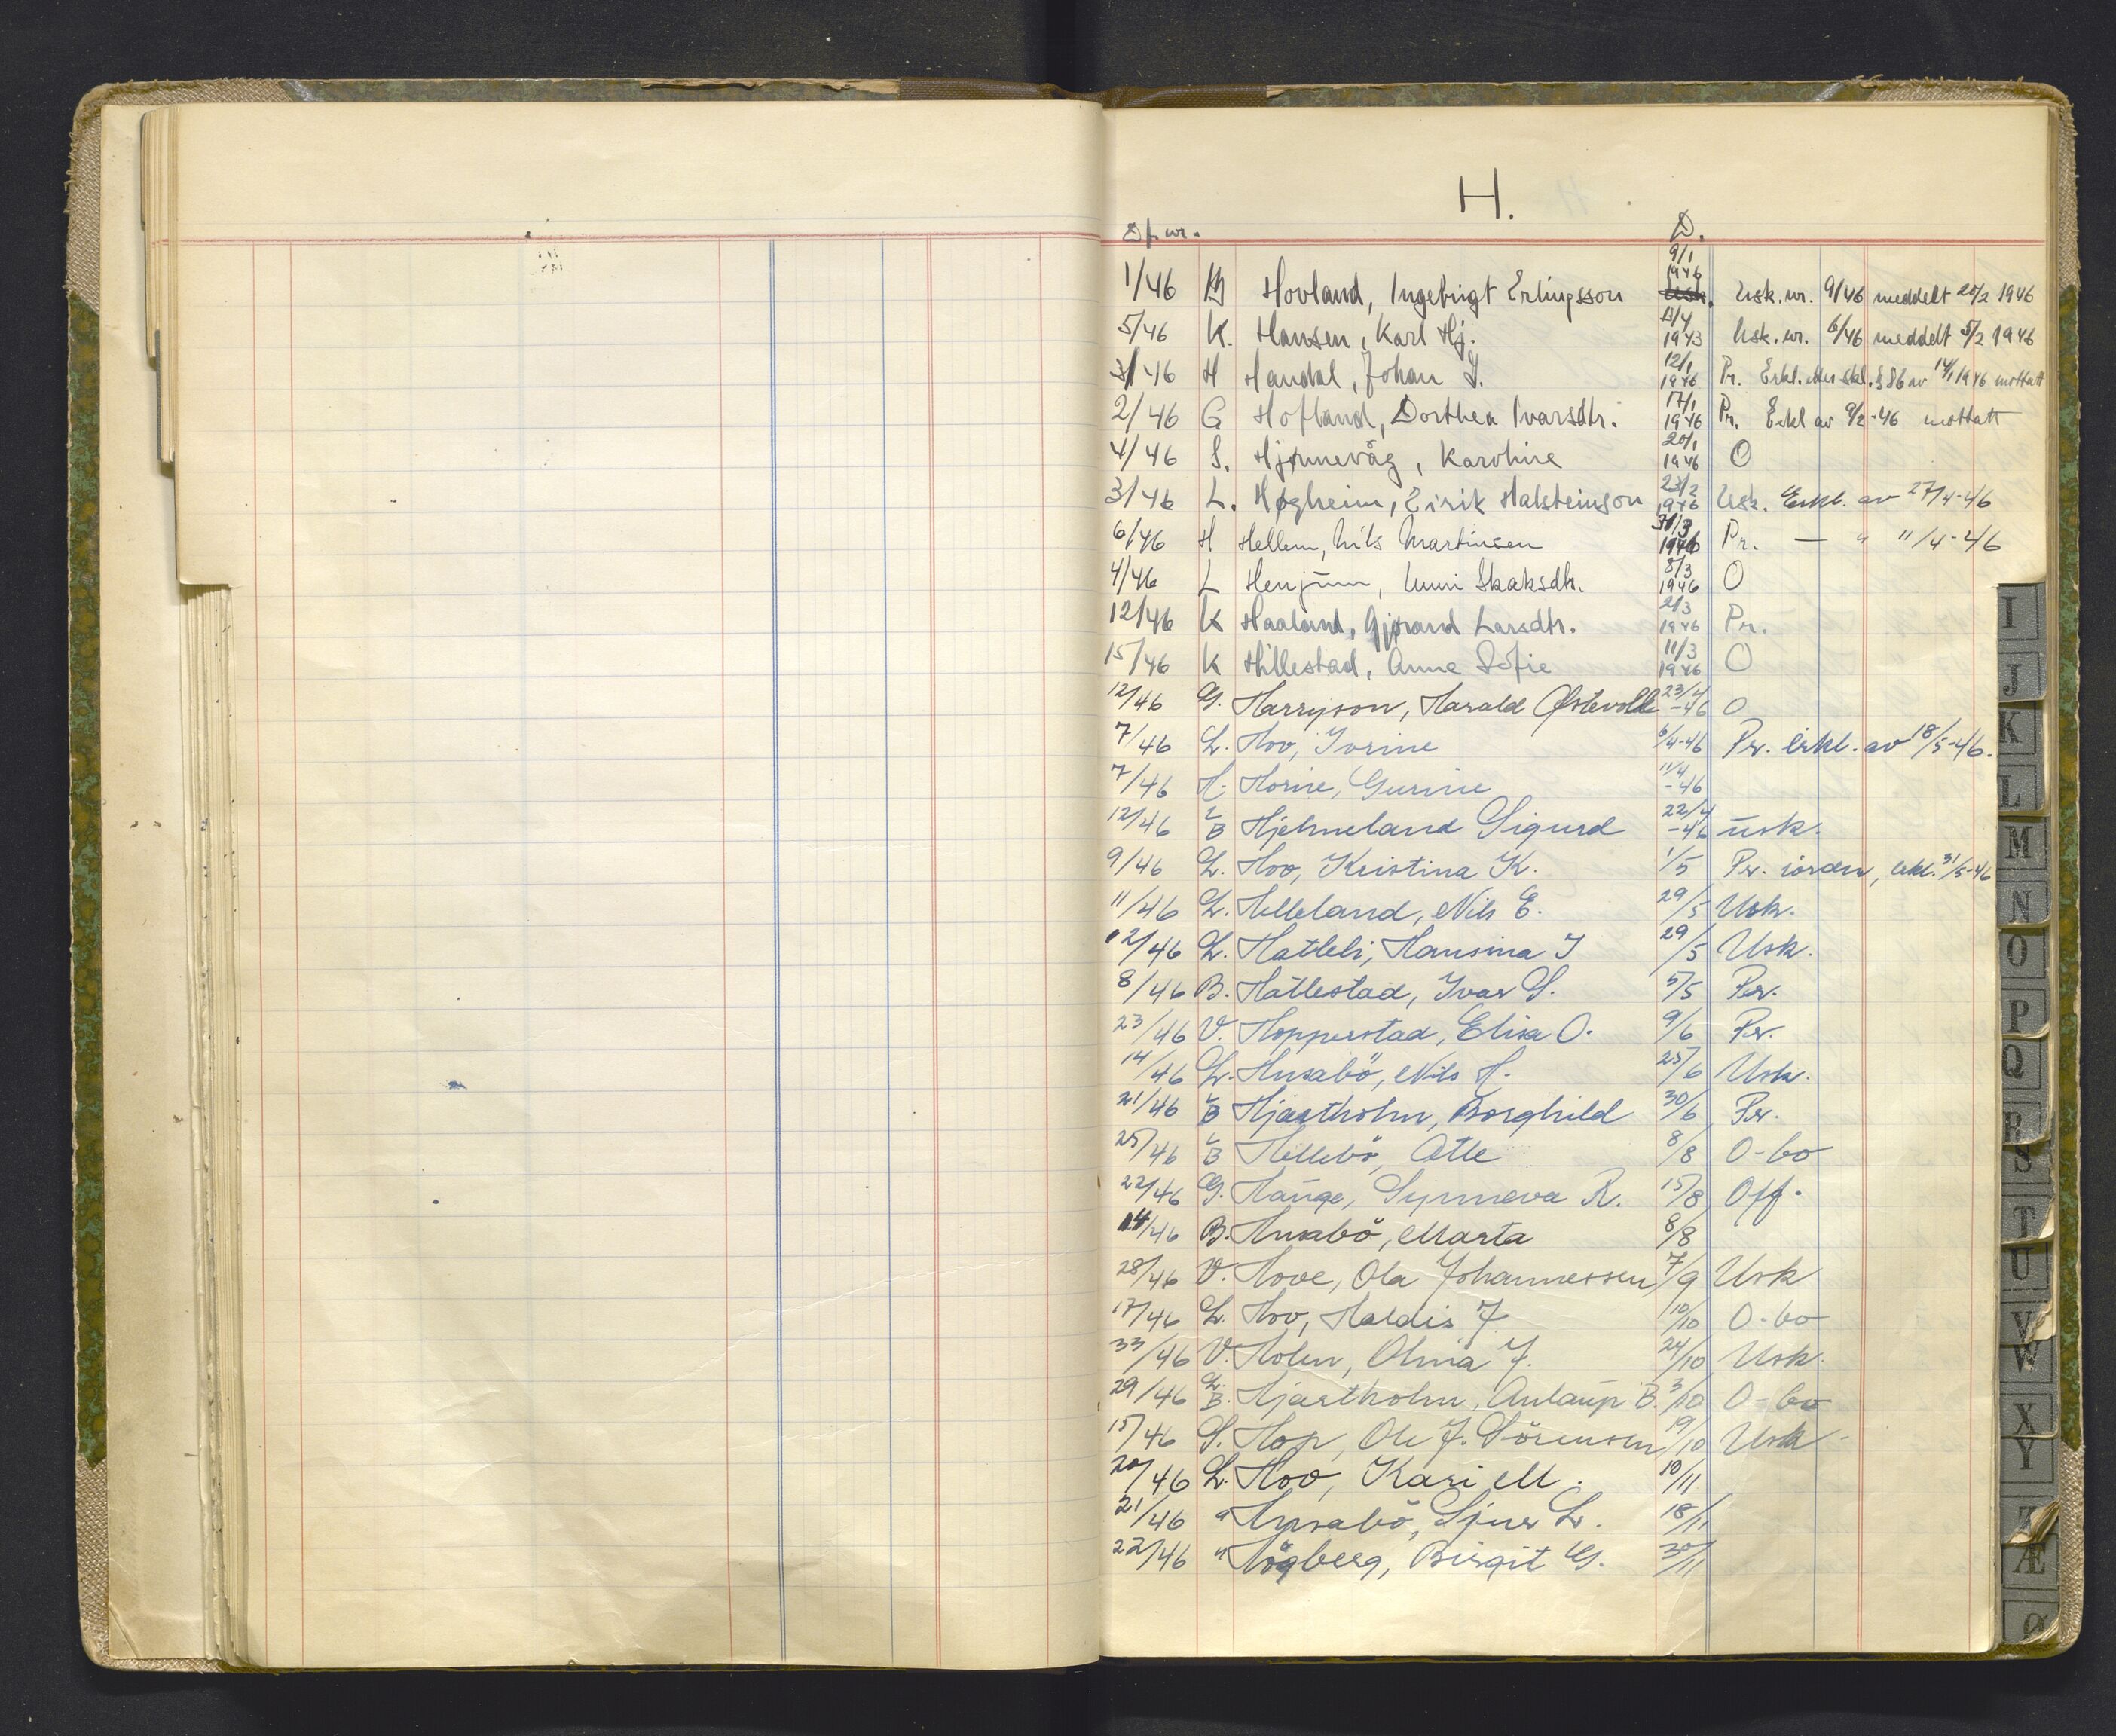 H.
Df. nr. D.
1/46 Hovland, Ingebrigt Erlingsson 9/1 1946 Usk. nr. 9/46 meddelt 20/2 1946
5/46 K. Hansen, Karl Hj. 13/4 1943 Usk. nr. 6/46 meddelt 5/2 1946
3/46 H Handal, Johan 12/1 1946 Pr. Erkl. etter skl. § 86 av 14/1 1946 mottatt
2/46 G Hofland, Dorthea Ivarsdtr. 17/1 1946 Pr. Erkl av 9/2-46 mottatt
4/46 S. Hjønnevåg, Karoline 20/1 1946 O
3/46 L. Høgheim, Eirik Halsteinson 23/2 1946 Usk. Erkl. av 27/4-46
6/46 H Hellem, Nils Martinsen 31/3 1946 Pr. — " 11/4-46
4/46 L Henjum, Unni Skaksdtr. 8/3 1946 O
12/46 K Haaland, Gjørand Larsdtr. 2/3 1946 Pr.
15/46 K Hillestad, Anna Sofie 11/3 1946 O
12/46 G. Harryson, Harald Østevoll 23/4 -46 O
7/46 L. Hov, Ivrine 6/4-46 Pr. erkl. av 18/5-46.
7/46 H. Horne, Gurine 11/4 -46
12/46 L B Hjelmeland Sigurd 22/4 -46 usk.
9/46 L. Hov, Kristina K. 1/5 Pr. iorden, erkl. 31/5-46
11/46 L. Helleland, Nils E. 29/5 Usk.
12/46 L. Hatleli, Hansina J 29/5 Usk.
8/46 B. Hatlestad, Ivar S. 5/5 Pr.
23/46 V. Hopperstad, Elisa O. 9/6 Pr.
14/46 L. Husabö, Nils H. 25/6 Usk.
21/46 L B Hjartholm, Borghild 30/6 Pr.
25/46 L B Hillebö, Atle 8/8 O-bo
22/46 G. Hauge, Synneva R. 15/8 Off.
14/46 B. Husabö, Marta 8/8
28/46 V. Hove, Ola Johannessen 7/9 Usk
17/46 L. Hov, Haldis J 10/10 O-bo
33/46 V. Holen, Olina J. 24/10 Usk.
29/46 L. B. Hjartholm, Anlaug B. 3/10 O-bo
15/46 S. Hop, Ole J. Sörensen 19/10 Usk
20/46 L. Hov, Kari M. 10/11
21/46 " Husabö, Sjur L. 18/11
22/46 " Högberg, Birgit G. 30/11
I
J
K
L
M
N
O
P
Q
R
S
T
U
V
W
X
Y
Z
Æ
Ø